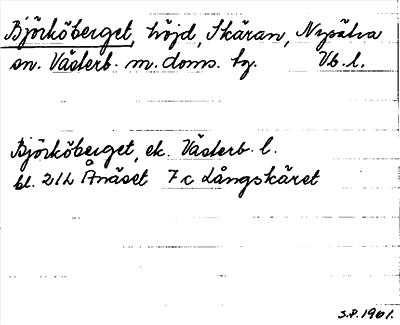 Björköberget, höjd, Skäran, Nysätra
sn. Västerb. m. doms. tg. Vb. l.
Björköberget, ek. Västerb. l.
bl. 21L Ånäset 7c Långskäret
S.P. 1961.